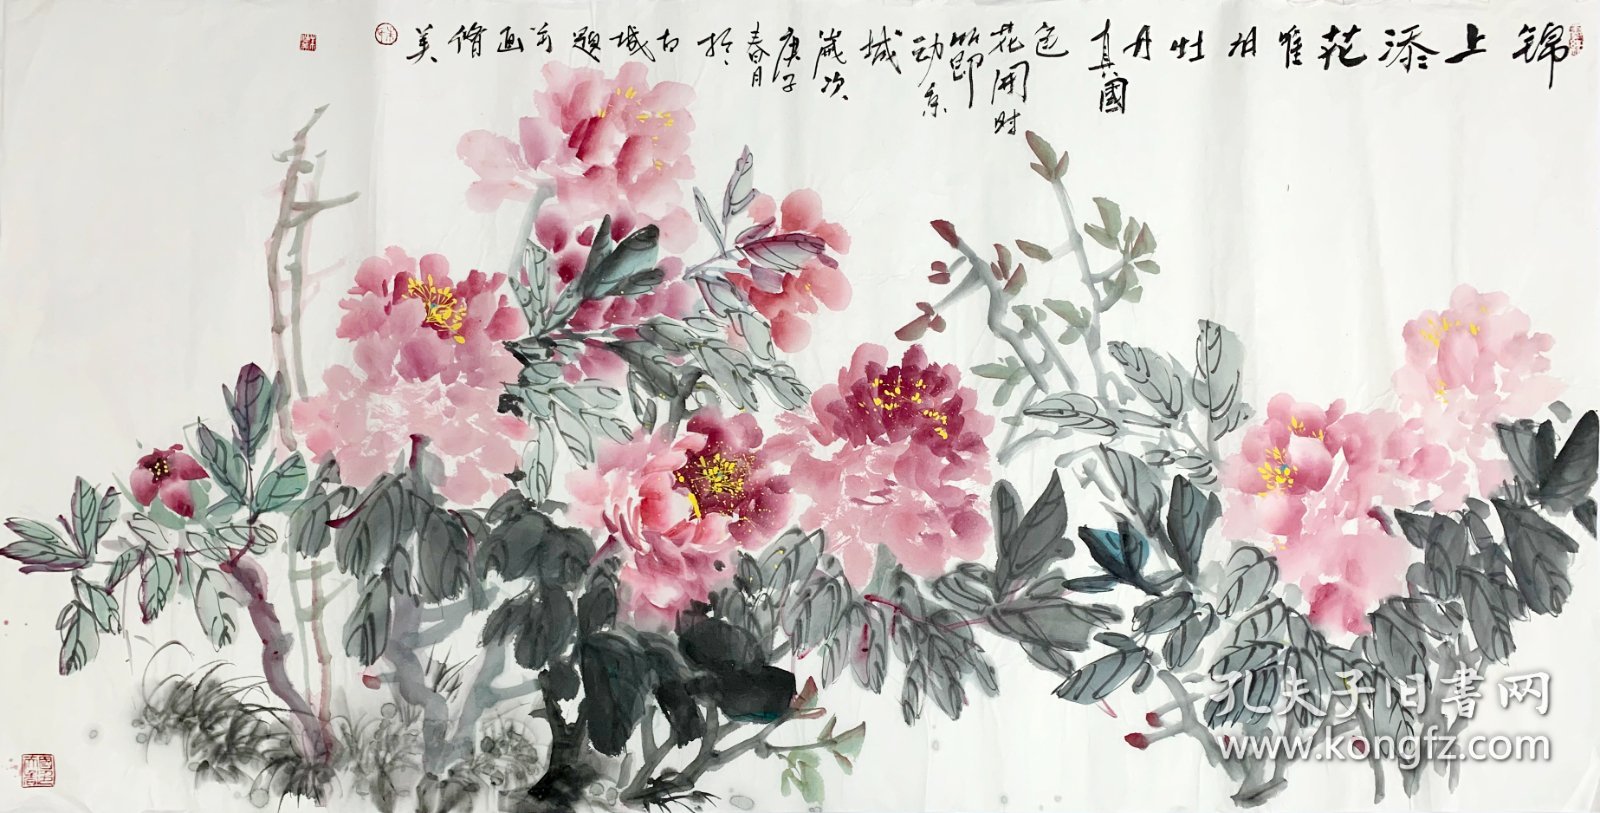 锦上添花唯有牡丹真國色花開时節动京城歲次庚子春月於古城题
画脩美
孔夫子旧書网
www.kongfz.com